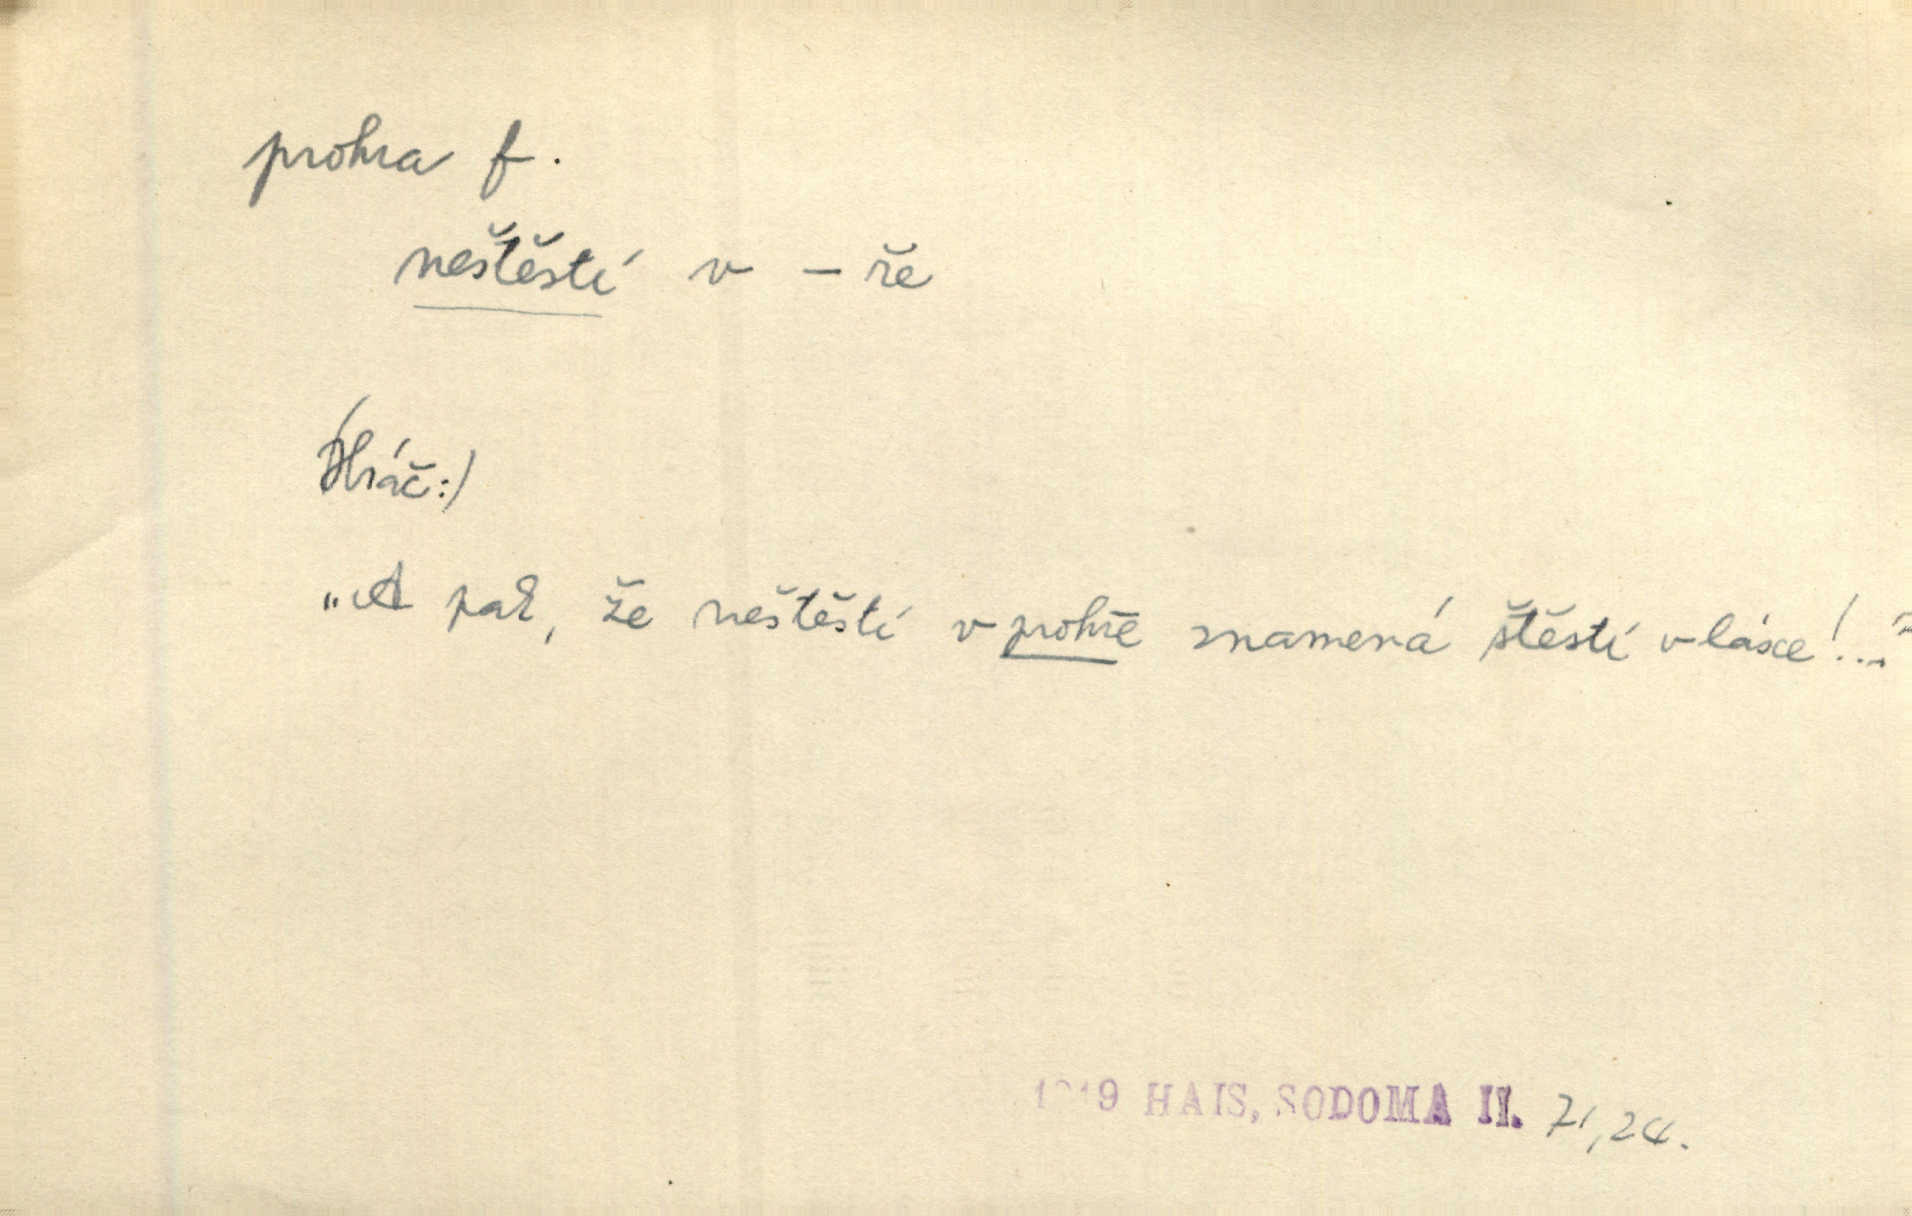 prohra f.
neštěstí v – ře
(Hráč:)
„A pak, že neštěstí v prohře znamená štěstí v lásce!..."
HAIS, SODOMA II. 71,24.